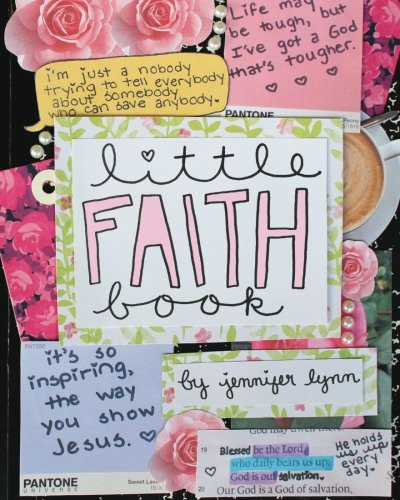 Life may
be tough, but
I've got a God
that's tougher.
PANTONE
Peony
i'm just a nobody
trying to tell everybody
about somebody
who can save anybody.
little
FAITH
book
PN7050
it's so
inspiring,
the way
you show
Jesus.
PANTONE
UNIVERSE
by jennifer lynn
19 Blessed be the Lord,
who daily bears us up;
God is our salvation.
20 Our God is a God of salvation,
He holds
us up
every
day.